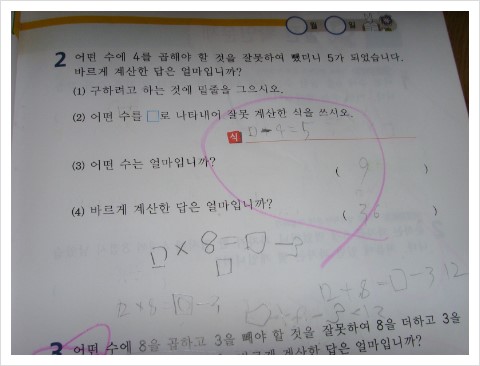 월 일
2 어떤 수에 4를 곱해야 할 것을 잘못하여 뺐더니 5가 되었습니다.
바르게 계산한 답은 얼마입니까?
(1) 구하려고 하는 것에 밑줄을 그으시오.
(2) 어떤 수를 □로 나타내어 잘못 계산한 식을 쓰시오.
식 □-4=5
(3) 어떤 수는 얼마입니까?
( 9 )
(4) 바르게 계산한 답은 얼마입니까?
( 36 )
□×8=□-3
□
□+8=□-3 12
3 어떤 수에 8을 곱하고 3을 빼야 할 것을 잘못하여 8을 더하고 3을
계산한 답은 얼마입니까?